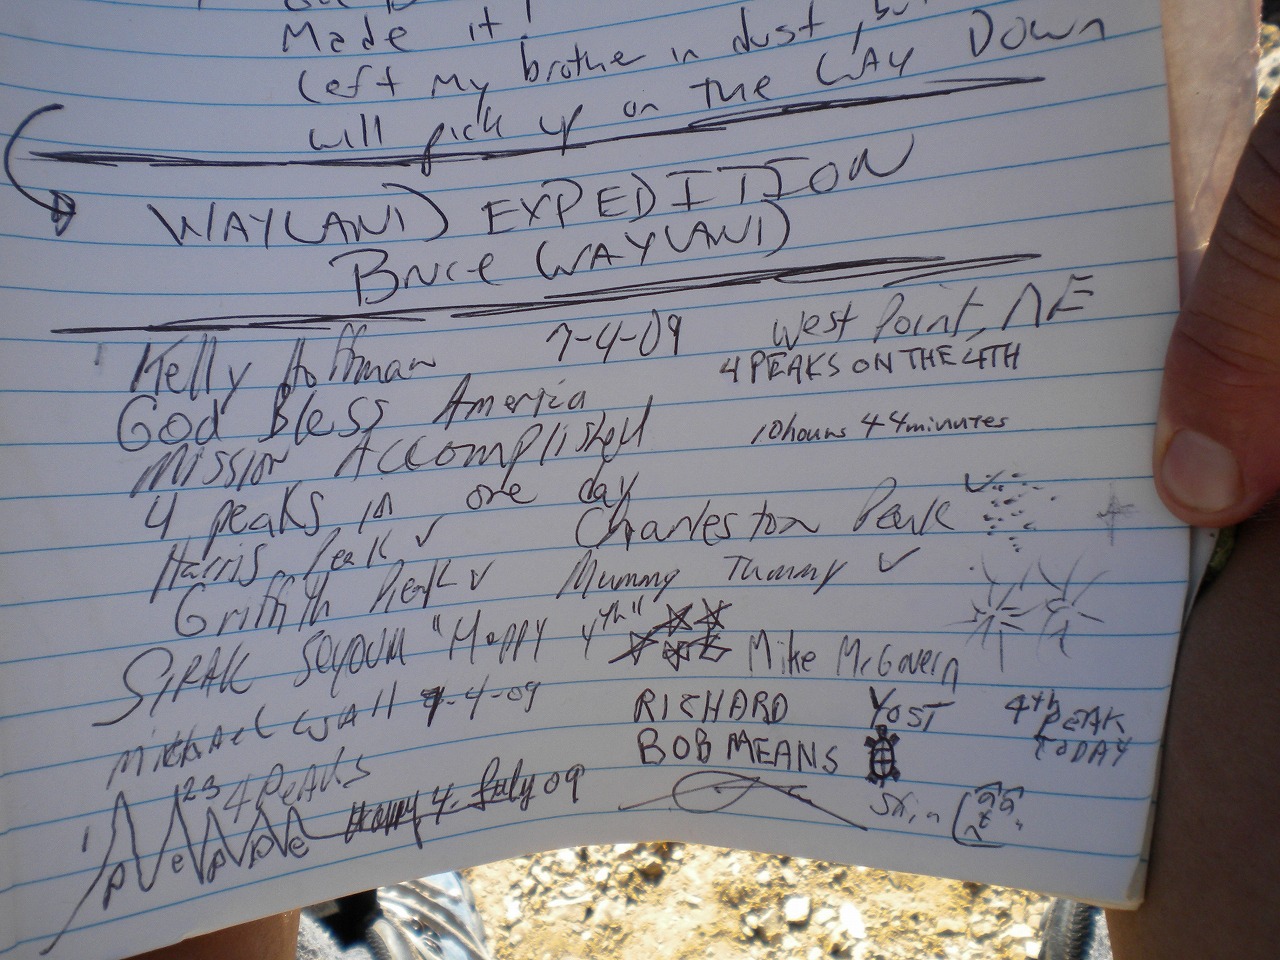 Made it!
Left my brother in dust, but
will pick up on the WAY DOWN
WAYLAND EXPEDITION
Bruce WAYLAND
Kelly Hoffman 7-4-09 West Point, NE
God Bless America 4 PEAKS ON THE 4TH
Mission Accomplished 10 hours 44 minutes
4 peaks in one day
Harris Peak ✓ Charleston Peak ✓
Griffith Peak ✓ Mummy Tummy ✓
SIRAK SEYOUM "Happy 4th" Mike McGovern
Michael Wall 7-4-09 RICHARD YOST 4th PEAK TODAY
4 PEAKS BOB MEANS
1 23 Happy 4. July 09